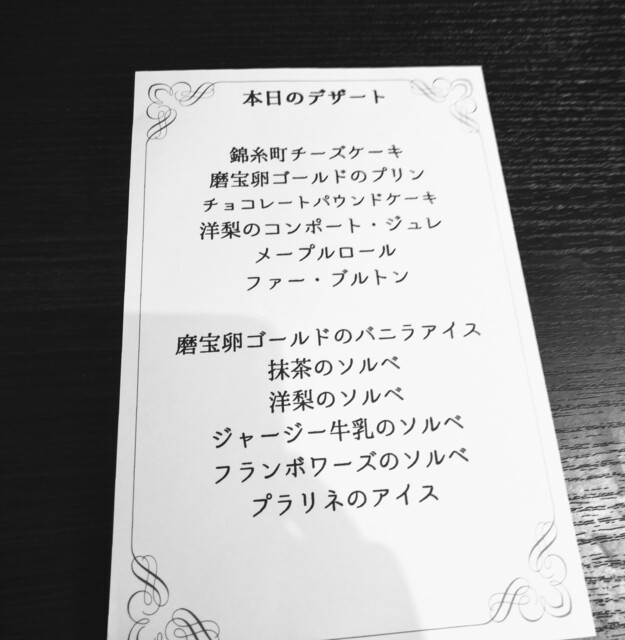 本日のデザート
錦糸町チーズケーキ
磨宝卵ゴールドのプリン
チョコレートパウンドケーキ
洋梨のコンポート・ジュレ
メープルロール
ファー・ブルトン
磨宝卵ゴールドのバニラアイス
抹茶のソルベ
洋梨のソルベ
ジャージー牛乳のソルベ
フランボワーズのソルベ
プラリネのアイス